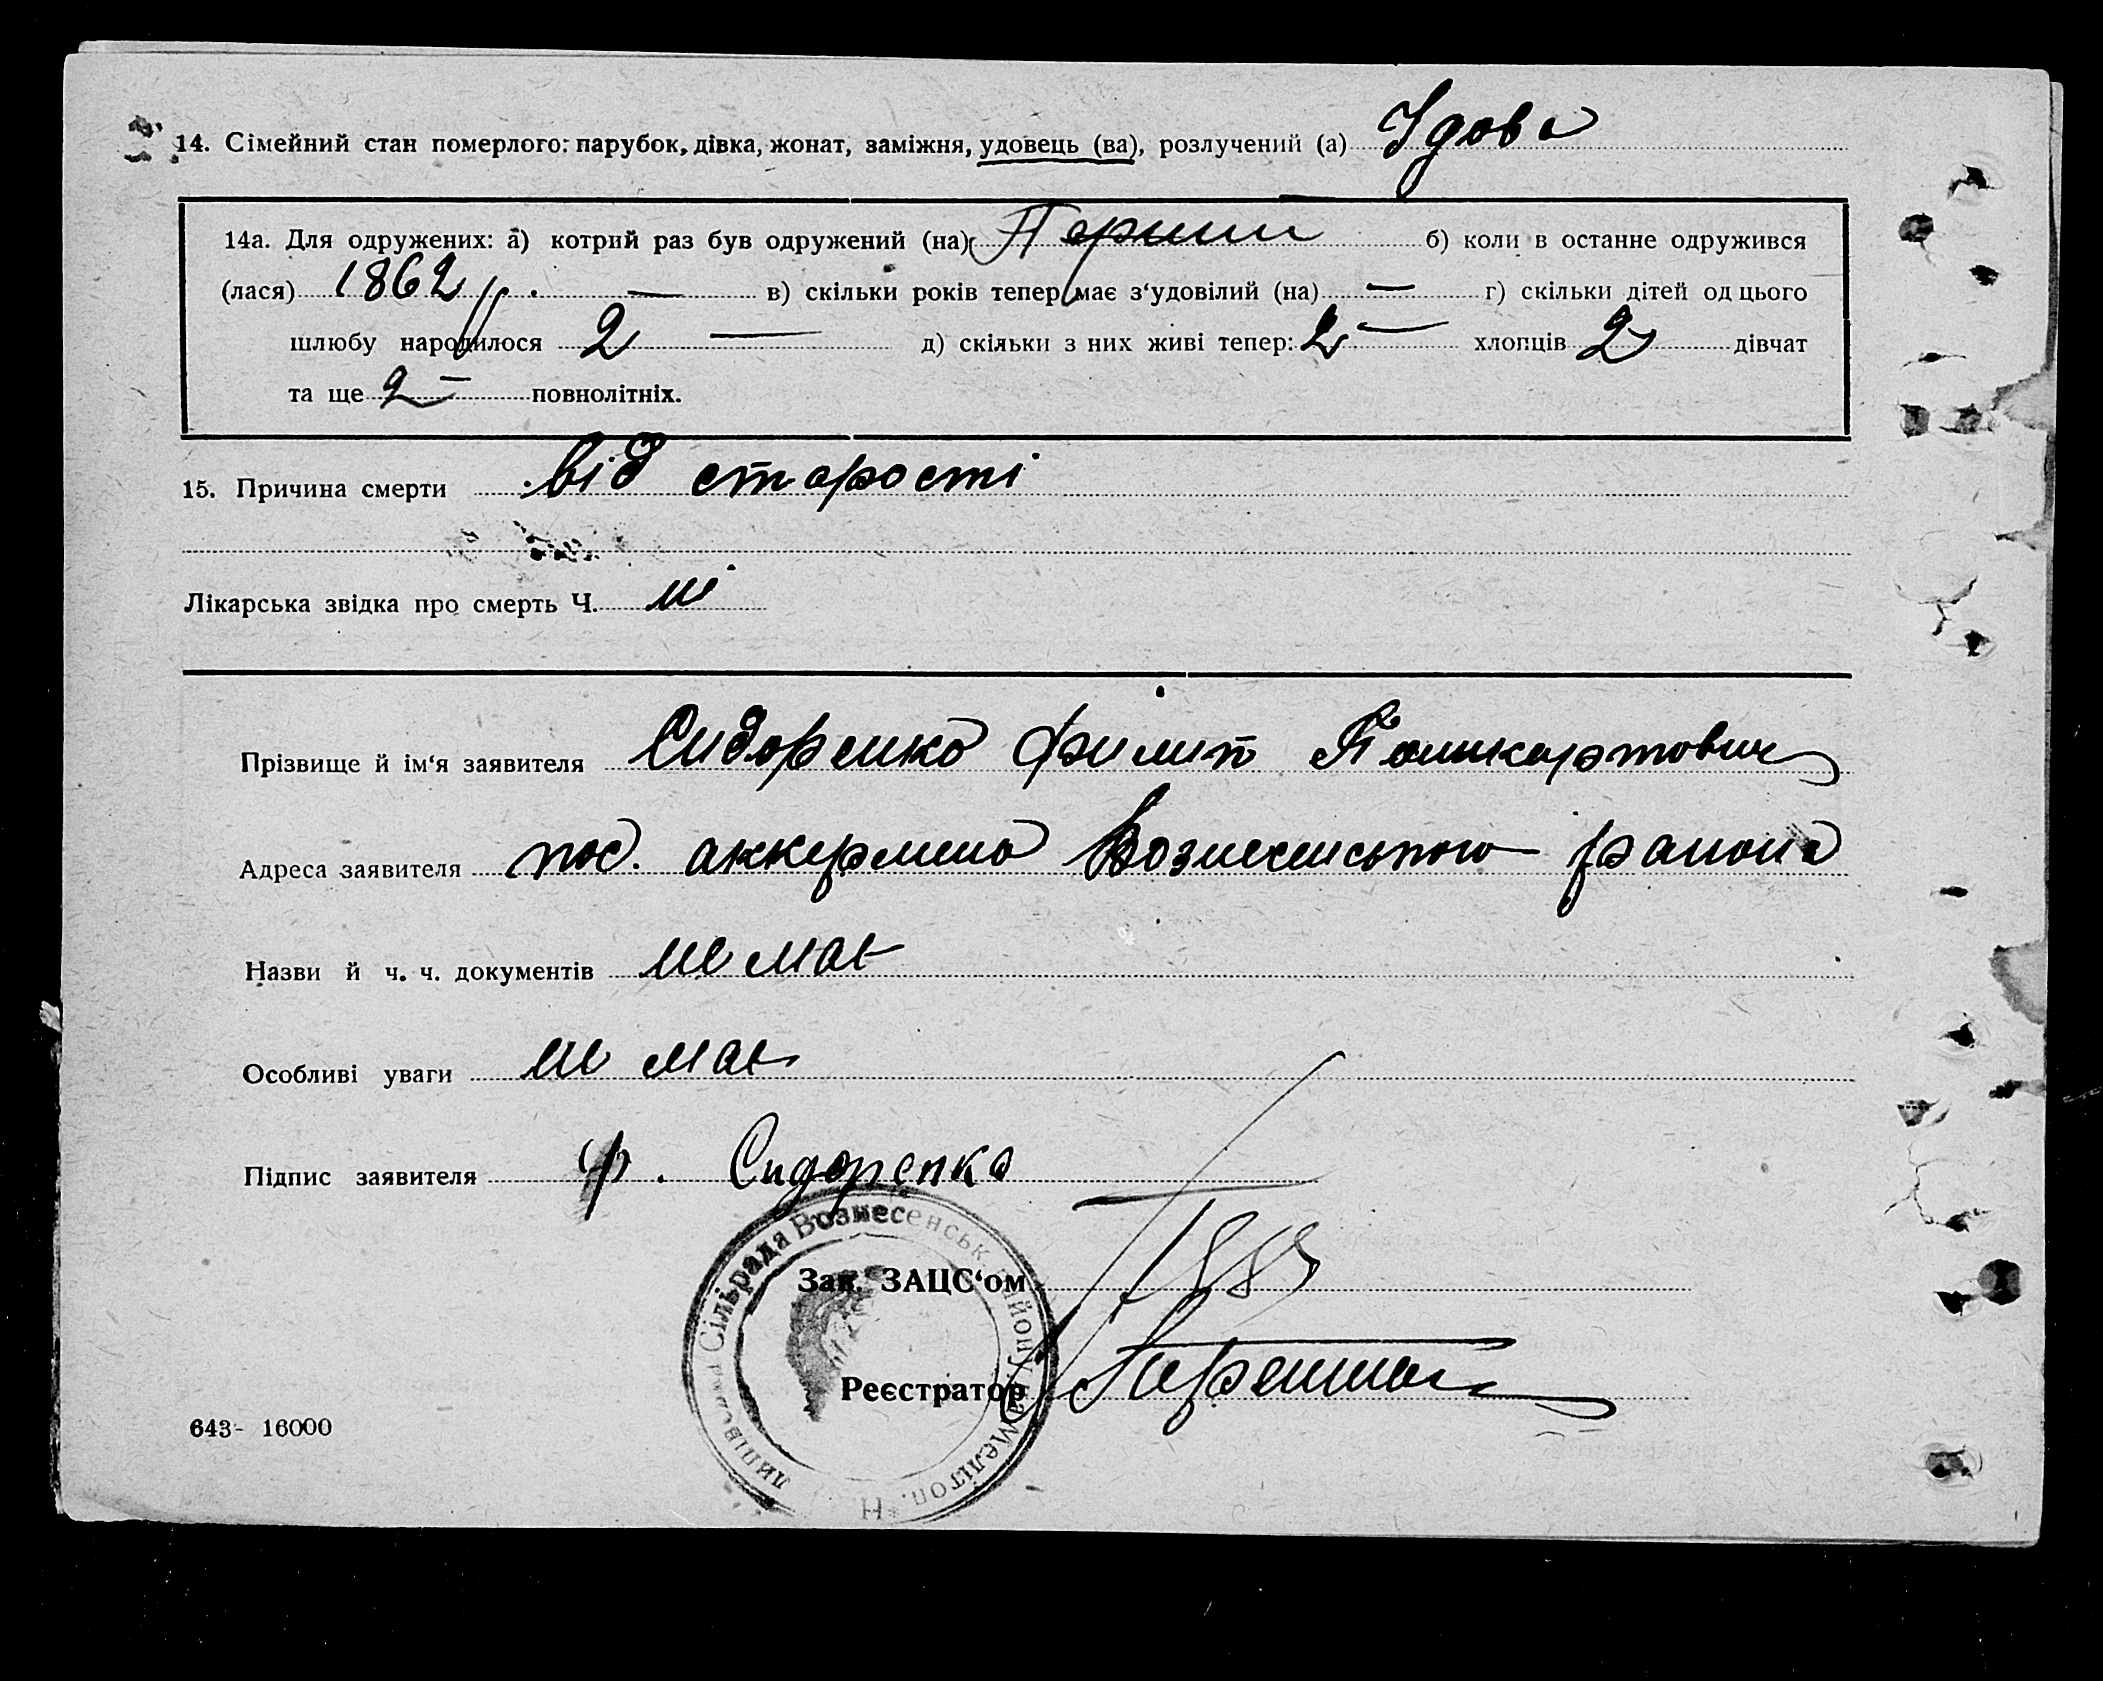 14. Сімейний стан померлого: парубок, дівка, жонат, заміжня, удовець (ва), розлучений (а) Удова
14а. Для одружених: а) котрий раз був одружений (на) Перший б) коли в останне одружився
(лася) 1862 р. — в) скільки років тепер має з‘удовілий (на) — г) скільки дітей од цього
шлюбу народилося 2 — д) скільки з них живі тепер: 2 — хлопців 2 дівчат
та ще 2 — повнолітніх.
15. Причина смерти від старості
Лікарська звідка про смерть Ч. ні
Прізвище й ім‘я заявителя Сидоренко Филип Поликарпович
Адреса заявителя пос. аккермень Вознесенського района
Назви й ч. ч. документів не має
Особливі уваги не має
Підпис заявителя Ф. Сидоренка
Сільрада Вознесенськ району Мелітоп.
Зав. ЗАЦС‘ом
Реєстратор
643- 16000